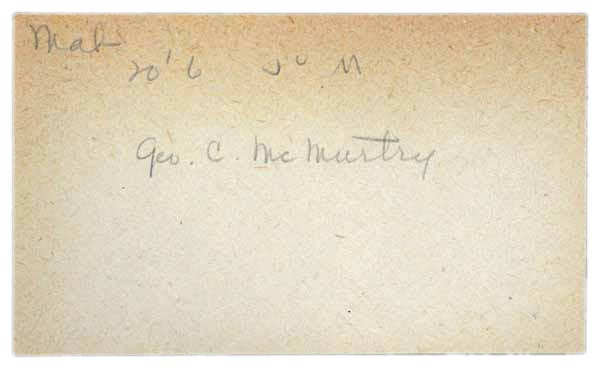 Mab
20' 6 50 M
Geo. C. McMurtry